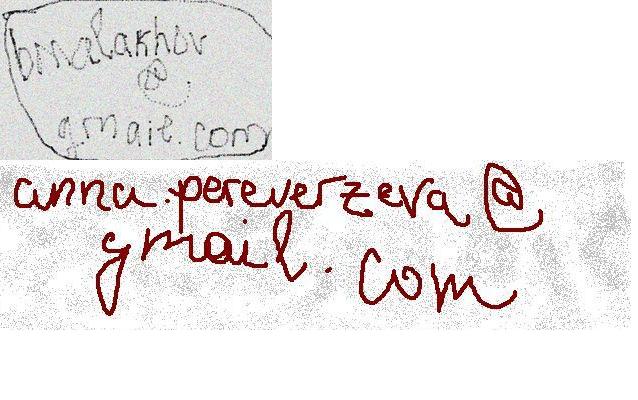 bmalakhov
@
gmail.com
anna.pereverzeva@
gmail.com